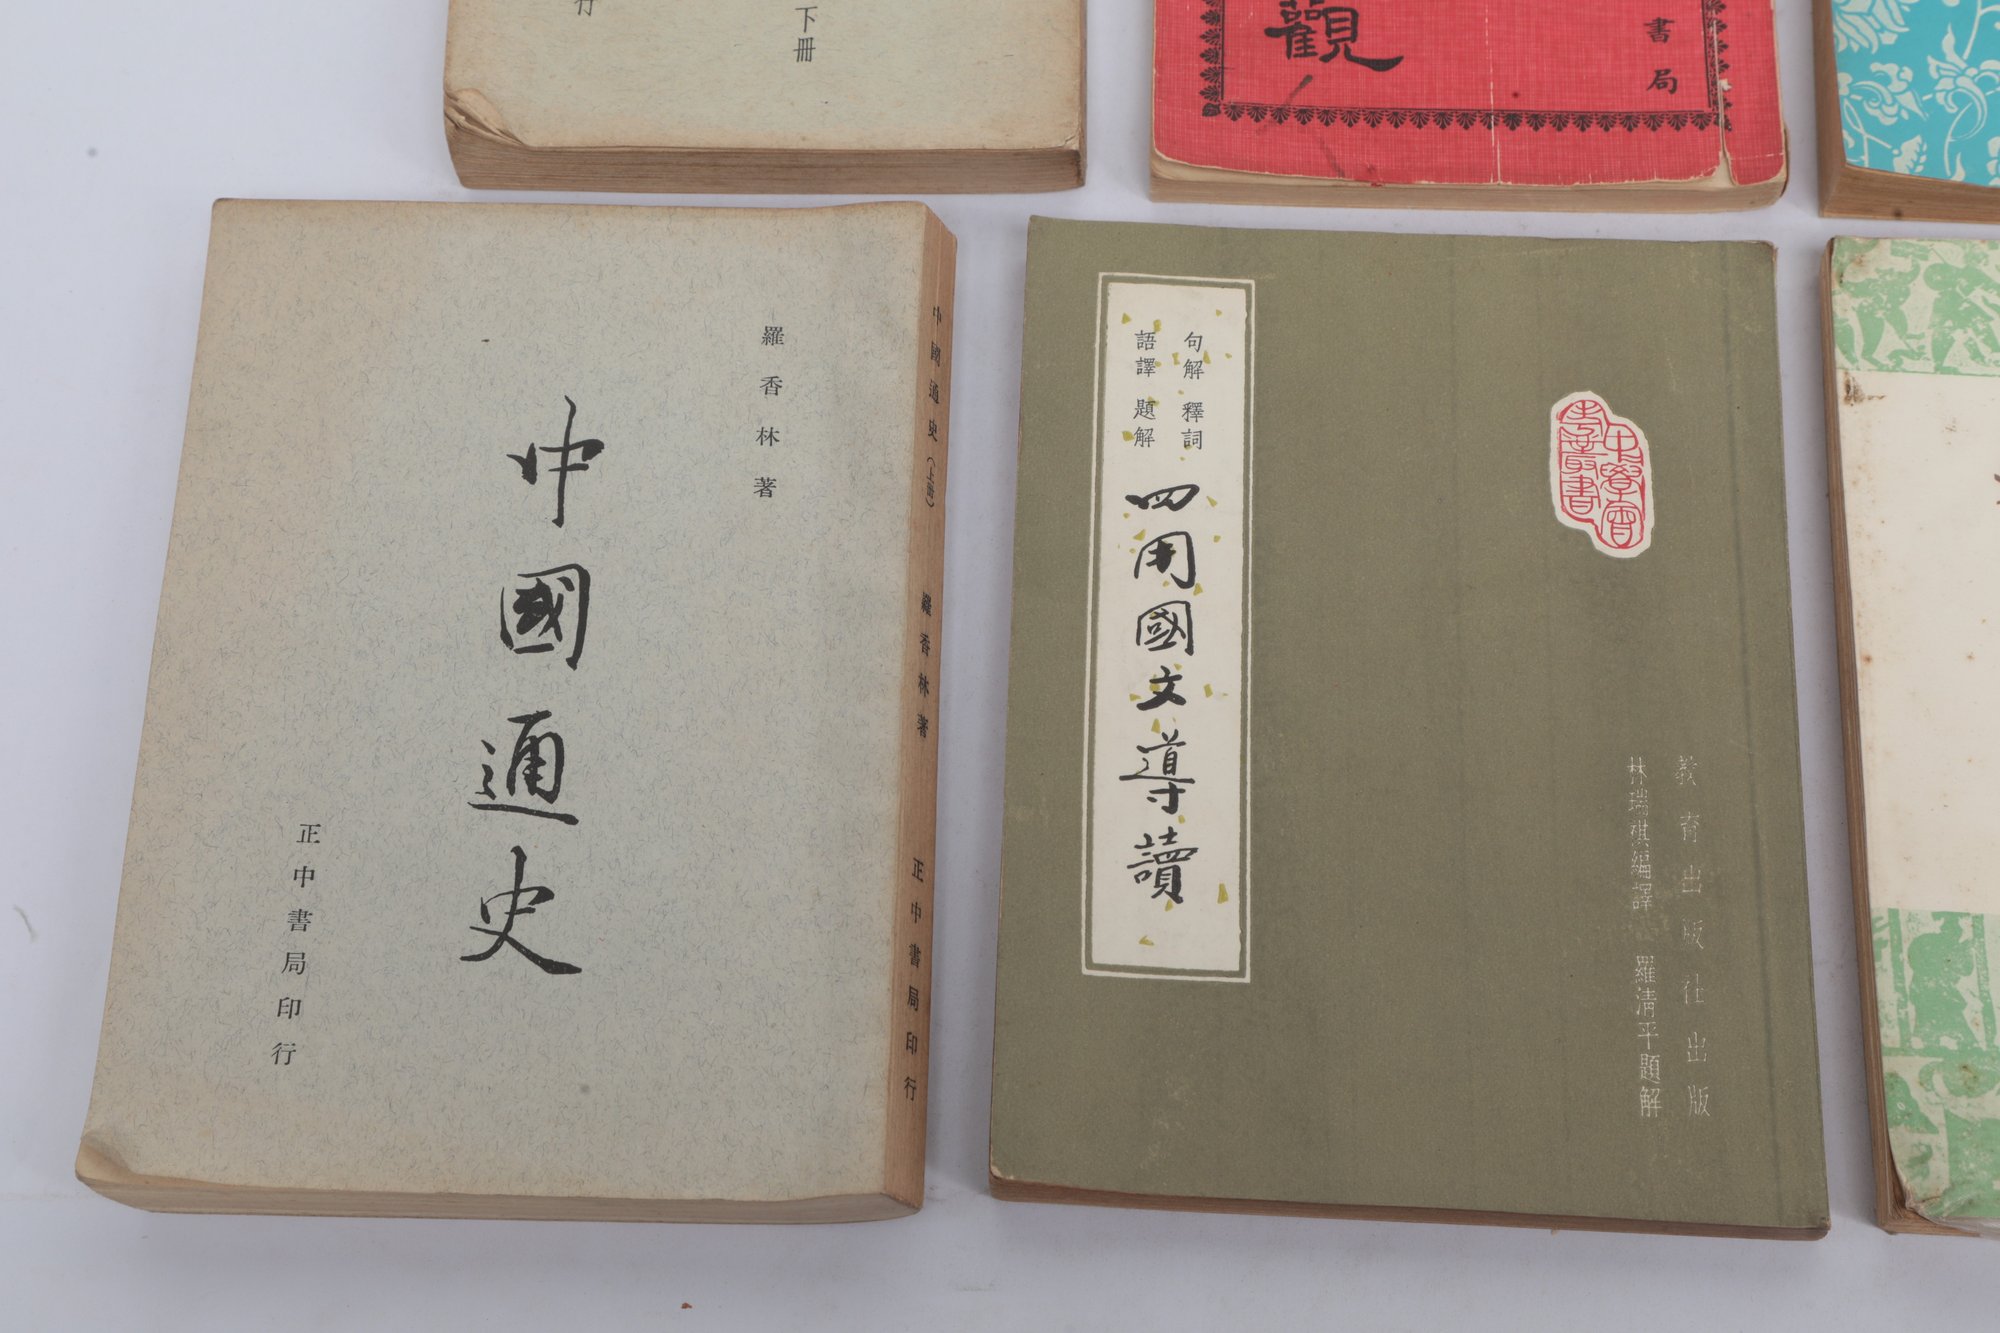 行
下冊
觀
書局
羅香林著
中國通史
正中書局印行
中國通史（上冊） 羅香林著 正中書局印行
句解 釋詞
語譯 題解
四用國文導讀
中學會
考叢書
教育出版社出版
林瑞祺編譯 羅清平題解